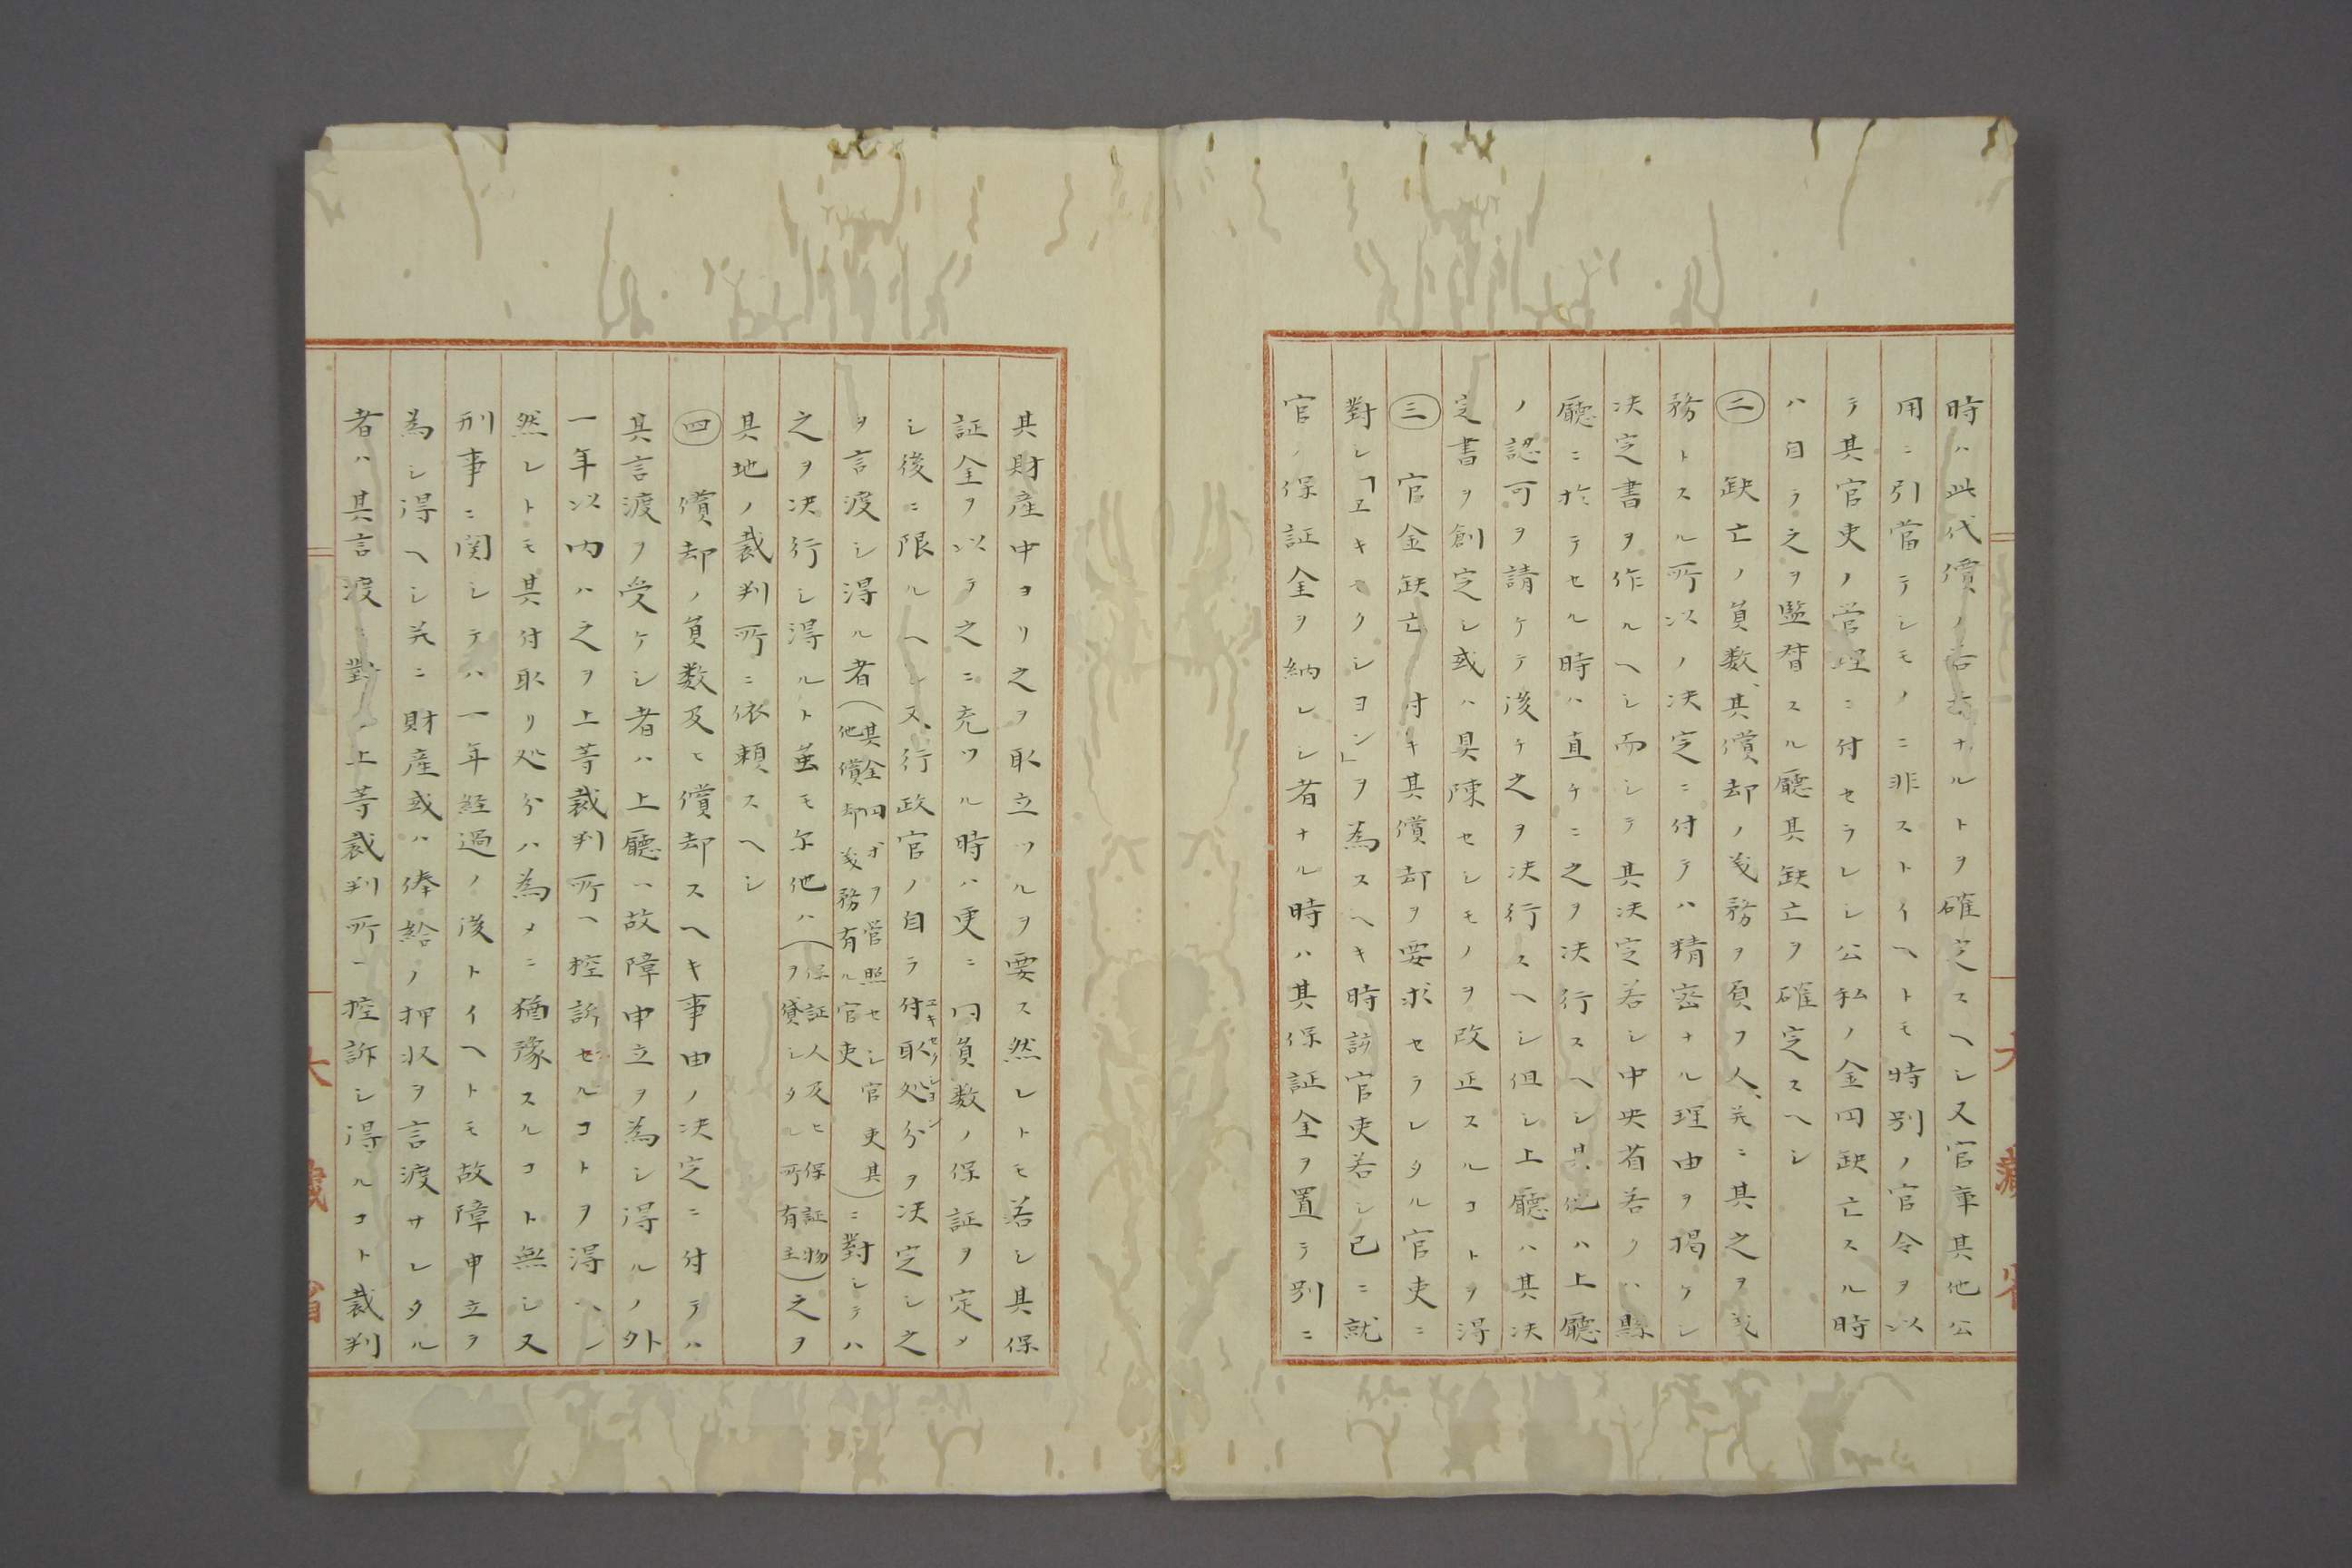 時ハ此代價ノ若干ナルトヲ確定スヘシ又官庫其他公
用ニ引當テシモノニ非ストイヘトモ特別ノ官令ヲ以
テ其官吏ノ管理ニ付セラレシ公私ノ金円缺亡スル時
ハ自ラ之ヲ監督スル廳其缺亡ヲ確定スヘシ
二 缺亡ノ員数、其償却ノ義務ヲ負フ人、并ニ其之ヲ義
務トスル所以ノ决定ニ付テハ精密ナル理由ヲ掲ケシ
决定書ヲ作ルヘシ而シテ其决定若シ中央省若クハ縣
廳ニ於テセル時ハ直チニ之ヲ决行スヘシ其他ハ上廳
ノ認可ヲ請ケテ後チ之ヲ决行スヘシ但シ上廳ハ其决
定書ヲ創定シ或ハ具陳セシモノヲ改正スルコトヲ得
三 官金缺亡ニ付キ其償却ヲ要求セラレタル官吏ニ
對シ「エキセクシヨン」ヲ為スヘキ時該官吏若シ已ニ就
官ノ保証金ヲ納レシ者ナル時ハ其保証金ヲ置テ別ニ
其財産中ヨリ之ヲ取立ツルヲ要ス然レトモ若シ其保
証金ヲ以テ之ニ充ツル時ハ更ニ同員数ノ保証ヲ定メ
シ後ニ限ルヘシ又、行政官ノ自ラ付取処分ヲ决定シ之
エキセクシヨン
ヲ言渡シ得ル者(其金円ヲ管照セシ官吏其
他償却義務有ル官吏)ニ對シテハ
之ヲ决行シ得ルト虽モ尓他ハ(保証人及ヒ保証物
ヲ貸シタル所有主)之ヲ
其地ノ裁判所ニ依頼スヘシ
四 償却ノ員数及ヒ償却スヘキ事由ノ决定ニ付テハ
其言渡ヲ受ケシ者ハ上廳ヘ故障申立ヲ為シ得ルノ外
一年以内ハ之ヲ上等裁判所ヘ控訴セルコトヲ得ヘシ
然レトモ其付取リ処分ハ為メニ猶豫スルコト無シ又
刑事ニ関シテハ一年経過ノ後トイヘトモ故障申立ヲ
為シ得ヘシ并ニ財産或ハ俸給ノ押収ヲ言渡サレタル
者ハ其言渡ニ對シ上等裁判所ヘ控訴シ得ルコト裁判
大藏省